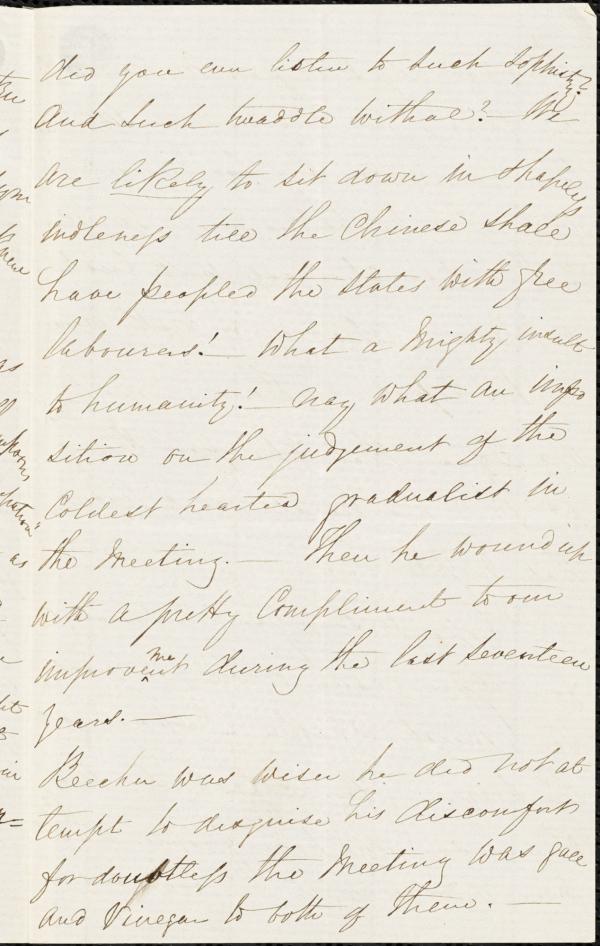 did you ever listen to such sophistry?
And such twaddle withal? We
are likely to sit down in
indleness till the Chinese shall
have peopled the States with free
labourers! — What a Mighty insult
to humanity! — nay what an impo
sition on the judgement of the
Coldest hearted gradualist in
the Meeting. — Then he wound up
with a pretty Compliment to our
improvement during the last seventeen
years. —
Beecher was wiser he did not at
tempt to disguise his discomfort
for doubtless the Meeting was gall
and Vinegar to both of them. —